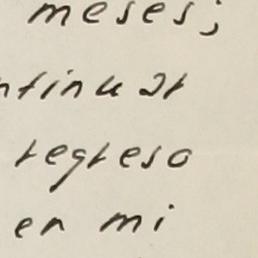 meses;
ntinuar
regreso
en mi